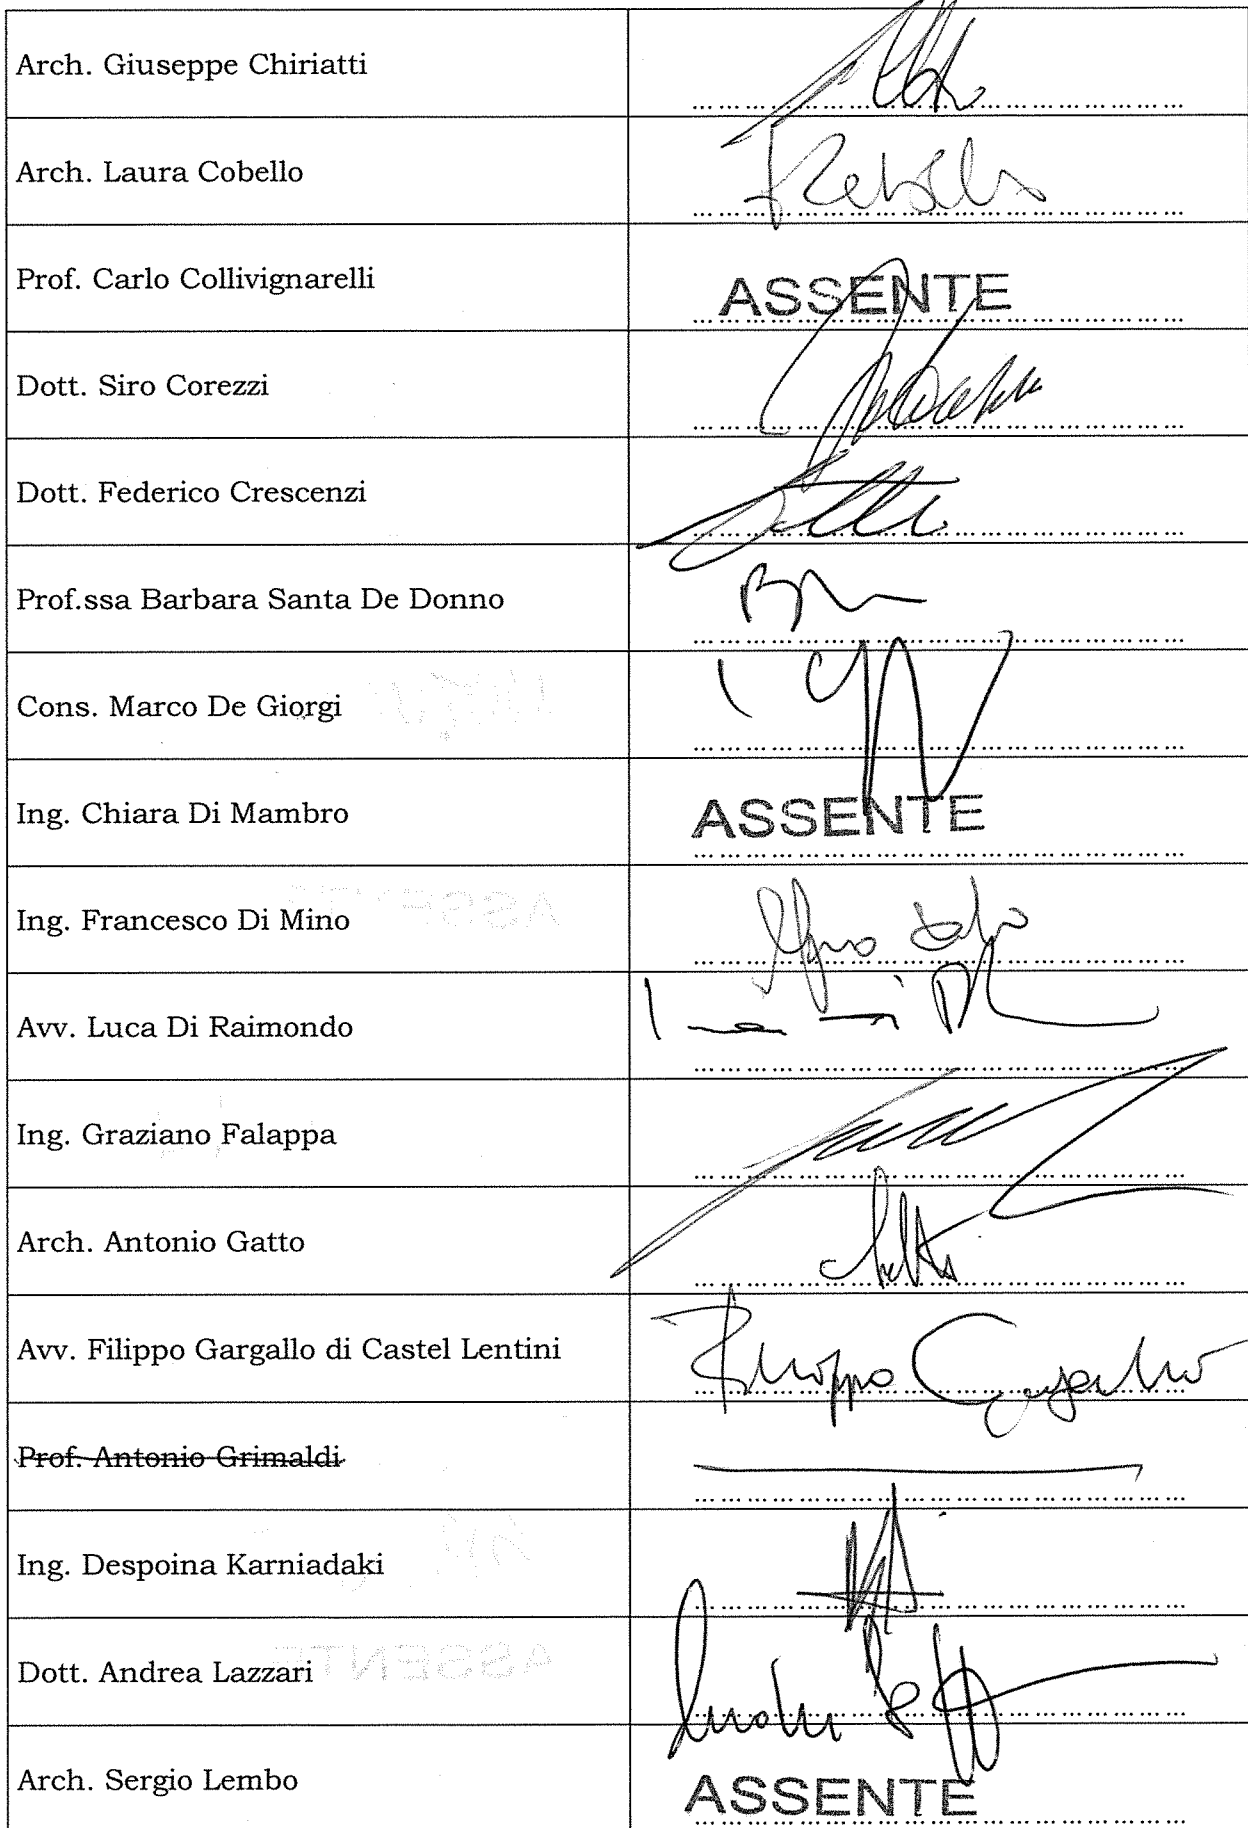 Arch. Giuseppe Chiriatti
Arch. Laura Cobello
Prof. Carlo Collivignarelli ASSENTE
Dott. Siro Corezzi
Dott. Federico Crescenzi
Prof.ssa Barbara Santa De Donno
Cons. Marco De Giorgi
Ing. Chiara Di Mambro ASSENTE
Ing. Francesco Di Mino
Avv. Luca Di Raimondo
Ing. Graziano Falappa
Arch. Antonio Gatto
Avv. Filippo Gargallo di Castel Lentini Filippo Gargallo
Prof. Antonio Grimaldi
Ing. Despoina Karniadaki
Dott. Andrea Lazzari
Arch. Sergio Lembo ASSENTE